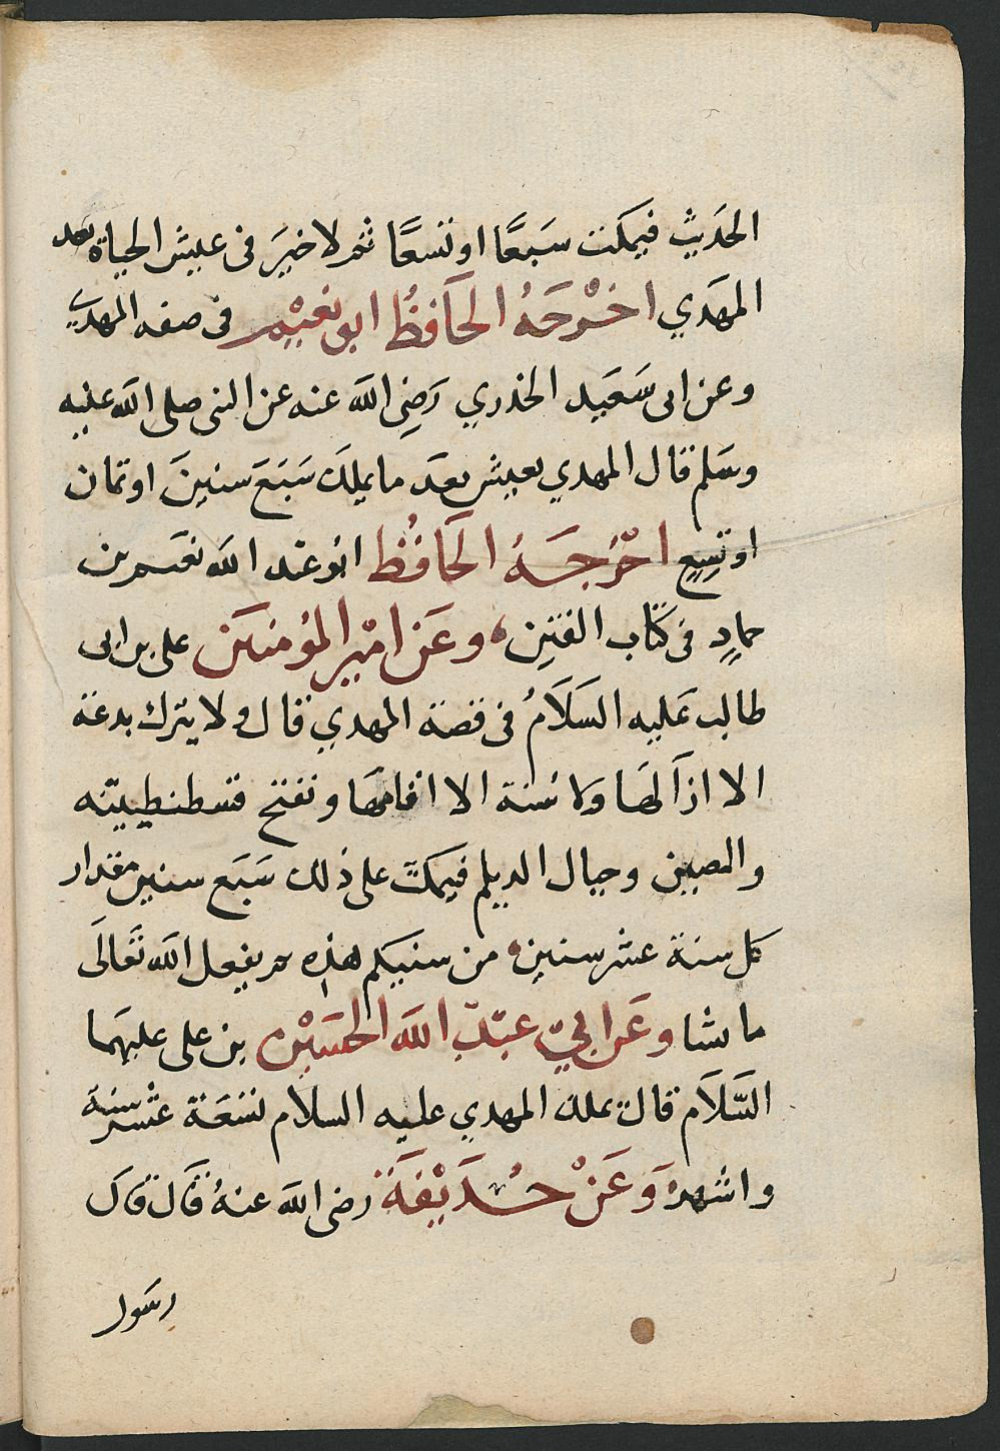 الحَديث فيمكث سَبعًا او تسعًا ثم لا خيرَ فى عيش الحياة بعد
المهَدي اخْرجَهُ الحَافظُ ابو نعيْم فى صفه المهدي
وعن ابى سَعَيد الخدري رَضِي الله عنه عن النبى صلى الله عليه
وسَلم قال المهدي يعيش بعَد ما يملك سَبَعَ سنينَ او ثمان
او تسِعٍ اخْرجَهُ الحَافُظ ابُو عبد الله نعَيم بن
حمادٍ فى كتاب الفتنِ، وعَن امْير المؤمنين على بن ابى
طالب عَليه السَلَامُ فى قصة المهدي قال ولا يترك بدعة
الا ازَالهَا ولا سُنة الا اقامهَا وتفتح قسطنطيينه
والصين وجبال الديلم فيمكث على ذلك سَبَع سنين مقدار
كل سنة عشر سنين من سنيكم هذه ثم يفعل الله تَعَالَى
ما شا وعَن ابيِ عبْد الله الحسَيْن بن على عليهَما
السَّلَام قال يملك المهدي عليه السلام تسَعة عشْر سنة
واشهر وَعَنْ حُذَيْفَة رضى الله عنهُ قَال قال
رسَول